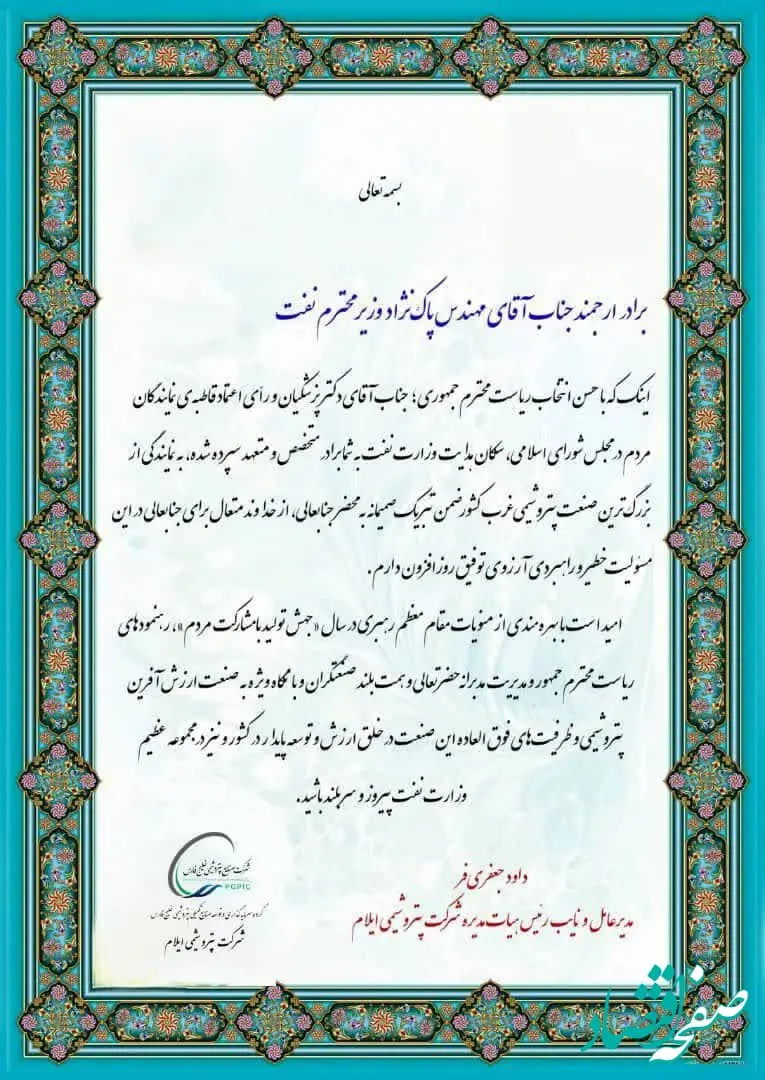 بسمه تعالی
برادر ارجمند جناب آقای مهندس پاک نژاد وزیر محترم نفت
اینک که با حسن انتخاب ریاست محترم جمهوری؛ جناب آقای دکتر پزشکیان و رأی اعتماد قاطبه ی نمایندگان
مردم در مجلس شورای اسلامی، سکان هدایت وزارت نفت به شما برادر متخصص و متعهد سپرده شده، به نمایندگی از
بزرگ ترین صنعت پتروشیمی غرب کشور ضمن تبریک صمیمانه به محضر جنابعالی، از خداوند متعال برای جنابعالی در این
مسئولیت خطیر و راهبردی آرزوی توفیق روز افزون دارم.
امید است با بهره مندی از منویات مقام معظم رهبری در سال «جهش تولید با مشارکت مردم»، رهنمودهای
ریاست محترم جمهور و مدیریت مدبرانه حضرتعالی و همت بلند صنعتگران و با نگاه ویژه به صنعت ارزش آفرین
پتروشیمی و ظرفیت های فوق العاده این صنعت در خلق ارزش و توسعه پایدار در کشور و نیز در مجموعه عظیم
وزارت نفت پیروز و سربلند باشید.
داود جعفری فر
مدیرعامل و نایب رئیس هیات مدیره شرکت پتروشیمی ایلام
شرکت صنایع پتروشیمی خلیج فارس
PGPIC
گروه سرمایه گذاری و توسعه صنایع تکمیلی پتروشیمی خلیج فارس
شرکت پتروشیمی ایلام
صفحه اقتصاد